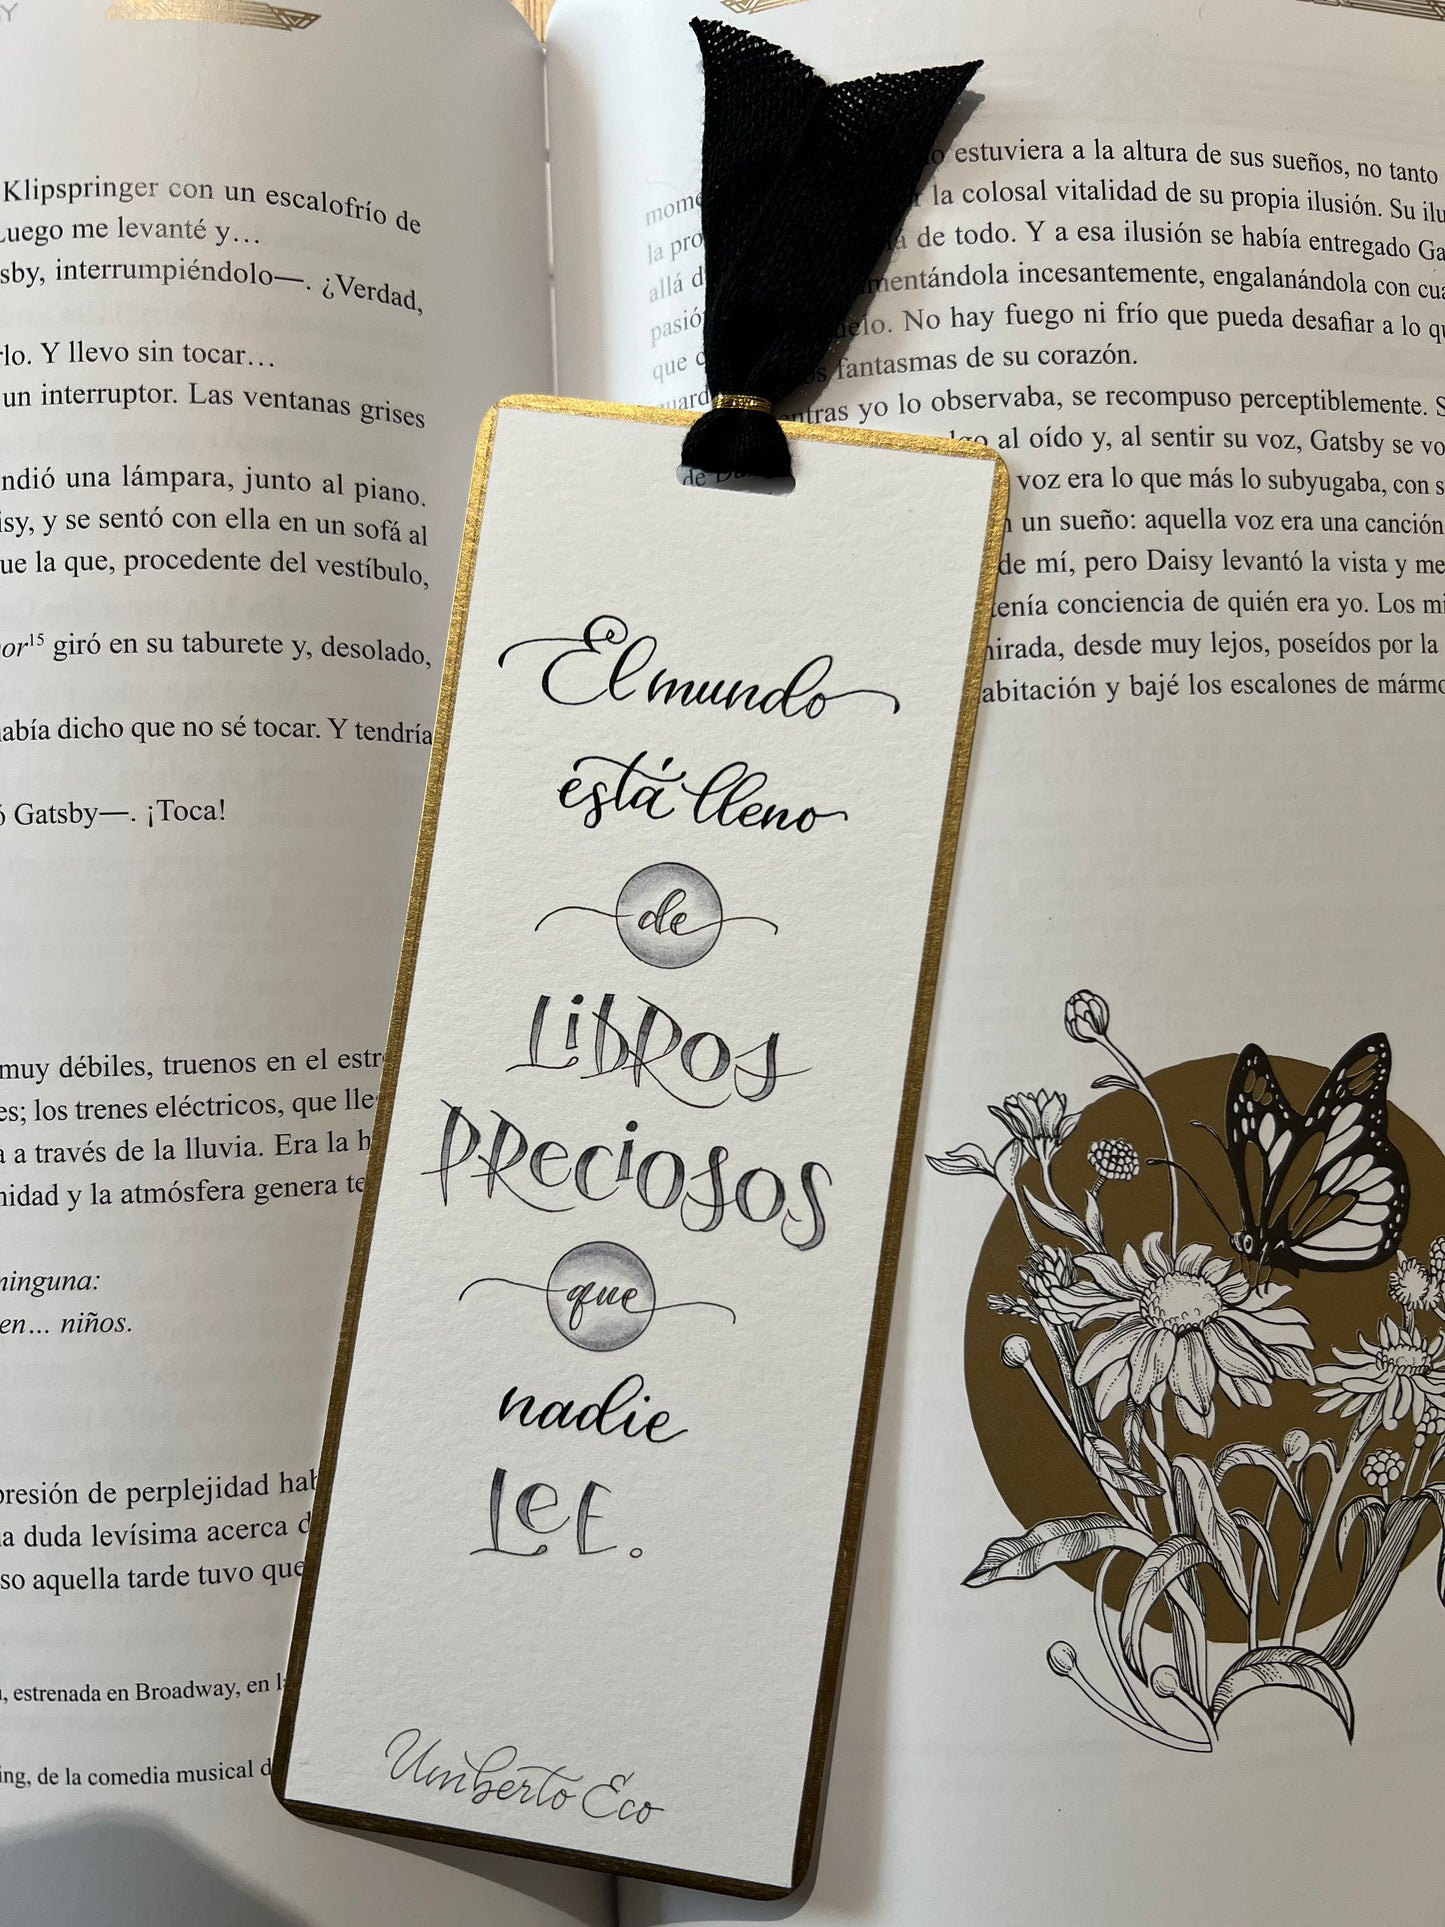 Klipspringer con un escalofrío de
Luego me levanté y…
sby, interrumpiéndolo—. ¿Verdad,
rlo. Y llevo sin tocar…
un interruptor. Las ventanas grises
ndió una lámpara, junto al piano.
isy, y se sentó con ella en un sofá al
ue la que, procedente del vestíbulo,
or15 giró en su taburete y, desolado,
había dicho que no sé tocar. Y tendría
ó Gatsby—. ¡Toca!
muy débiles, truenos en el estr
es; los trenes eléctricos, que lle
a a través de la lluvia. Era la h
nidad y la atmósfera genera te
ninguna:
en… niños.
presión de perplejidad hab
na duda levísima acerca d
so aquella tarde tuvo que
, estrenada en Broadway, en l
ing, de la comedia musical d
El mundo
está lleno
de
LIBROS
PRECIOSOS
que
nadie
LEE.
Umberto Eco
estuviera a la altura de sus sueños, no tanto
mome r la colosal vitalidad de su propia ilusión. Su ilu
la pro á de todo. Y a esa ilusión se había entregado Ga
allá d mentándola incesantemente, engalanándola con cua
pasió uelo. No hay fuego ni frío que pueda desafiar a lo qu
que c os fantasmas de su corazón.
uard entras yo lo observaba, se recompuso perceptiblemente. S
lgo al oído y, al sentir su voz, Gatsby se vo
de Dai voz era lo que más lo subyugaba, con s
n un sueño: aquella voz era una canción
de mí, pero Daisy levantó la vista y me
tenía conciencia de quién era yo. Los mi
mirada, desde muy lejos, poseídos por la
abitación y bajé los escalones de mármo